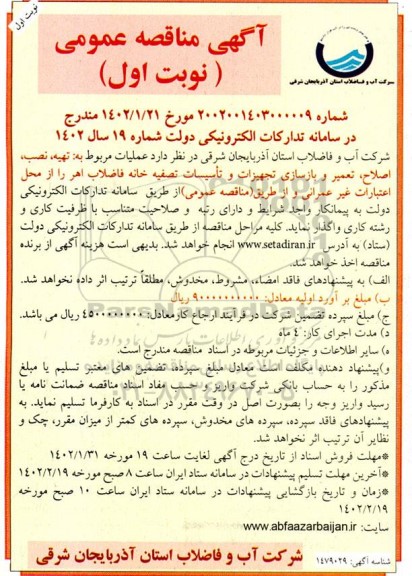 نوبت اول
شرکت آب و فاضلاب استان آذربایجان شرقی
آگهی مناقصه عمومی
( نوبت اول)
شماره ۲۰۰۲۰۰۱۴۰۳۰۰۰۰۰۹ مورخ ۱۴۰۲/۱/۲۱ مندرج
در سامانه تدارکات الکترونیکی دولت شماره ۱۹ سال ۱۴۰۲
شرکت آب و فاضلاب استان آذربایجان شرقی در نظر دارد عملیات مربوط به: تهیه، نصب،
اصلاح، تعمیر و بازسازی تجهیزات و تأسیسات تصفیه خانه فاضلاب اهر را از محل
اعتبارات غیر عمرانی و از طریق(مناقصه عمومی)از طریق سامانه تدارکات الکترونیکی
دولت به پیمانکار واجد شرایط و دارای رتبه و صلاحیت متناسب با ظرفیت کاری و
رشته کاری واگذار نماید. کلیه مراحل مناقصه از طریق سامانه تدارکات الکترونیکی دولت
(ستاد) به آدرس: www.setadiran.ir انجام خواهد شد. بدیهی است هزینه آگهی از برنده
مناقصه اخذ خواهد شد.
الف) به پیشنهادهای فاقد امضاء، مشروط، مخدوش، مطلقاً ترتیب اثر داده نخواهد شد.
ب) مبلغ بر آورد اولیه معادل: ۹۰۰۰۰۰۰۰۰۰۰ ریال
ج) مبلغ سپرده تضمین شرکت در فرآیند ارجاع کارمعادل: ۴۵۰۰۰۰۰۰۰۰ ریال می باشد.
د) مدت اجرای کار: ۴ ماه
ه) سایر اطلاعات و جزئیات مربوطه در اسناد مناقصه مندرج است.
و)پیشنهاد دهنده مکلف است معادل مبلغ سپرده، تضمین های معتبر تسلیم یا مبلغ
مذکور را به حساب بانکی شرکت واریز و حسب مفاد اسناد مناقصه ضمانت نامه یا
رسید واریز وجه را بصورت اصل در وقت مقرر در اسناد به کارفرما تسلیم نماید. به
پیشنهادهای فاقد سپرده، سپرده های مخدوش، سپرده های کمتر از میزان مقرر، چک و
نظایر آن ترتیب اثر نخواهد شد.
*مهلت فروش اسناد از تاریخ درج آگهی لغایت ساعت ۱۹ مورخه ۱۴۰۲/۱/۳۱
*آخرین مهلت تسلیم پیشنهادات در سامانه ستاد ایران ساعت ۸ صبح مورخه ۱۴۰۲/۲/۱۹
*زمان و تاریخ بازگشایی پیشنهادات در سامانه ستاد ایران ساعت ۱۰ صبح مورخه
۱۴۰۲/۲/۱۹
سایت: www.abfaazarbaijan.ir
شناسه آگهی: ۱۴۷۹۰۲۹
شرکت آب و فاضلاب استان آذربایجان شرقی